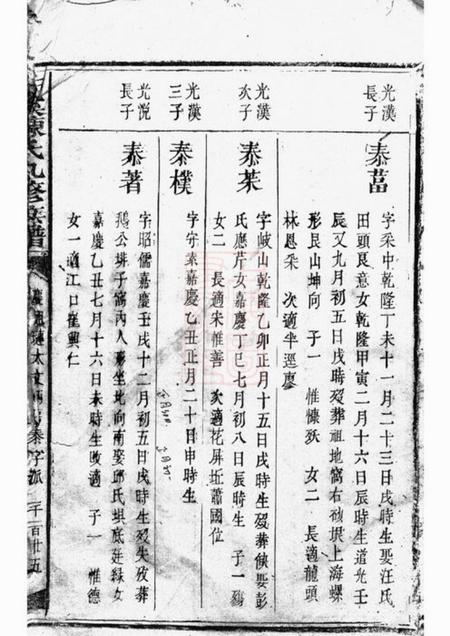 光漢長子
泰葍
字采中乾隆丁未十一月二十三日戌時生娶汪氏
田頭良意女乾隆甲寅二月十六日辰時生道光壬
辰又九月初五日戌時歿葬祖地窩右上海螺
形艮山坤向 子一 惟慷歿 女二 長適龍頭
林恩采 次適 廖
光漢次子
泰茱
字岐山乾隆乙卯正月十五日戌時生歿葬 娶彭
氏應芹女嘉慶丁巳七月初八日辰時生 子一殤
女二 長適宋惟善 次適花屏坵蕭國位
光漢三子
泰樸
字守素嘉慶乙丑正月二十日申時生
光悅長子
泰著
字昭儒嘉慶壬戌十二月初五日戌時生歿失攷葬
鵝公排子窩內人形坐地向南娶邱氏垻底廷綠女
嘉慶乙丑七月十六日未時生改適 子一 惟德
女一適江口崔興仁
陳氏九修族譜
泰字派
二千一百廿五